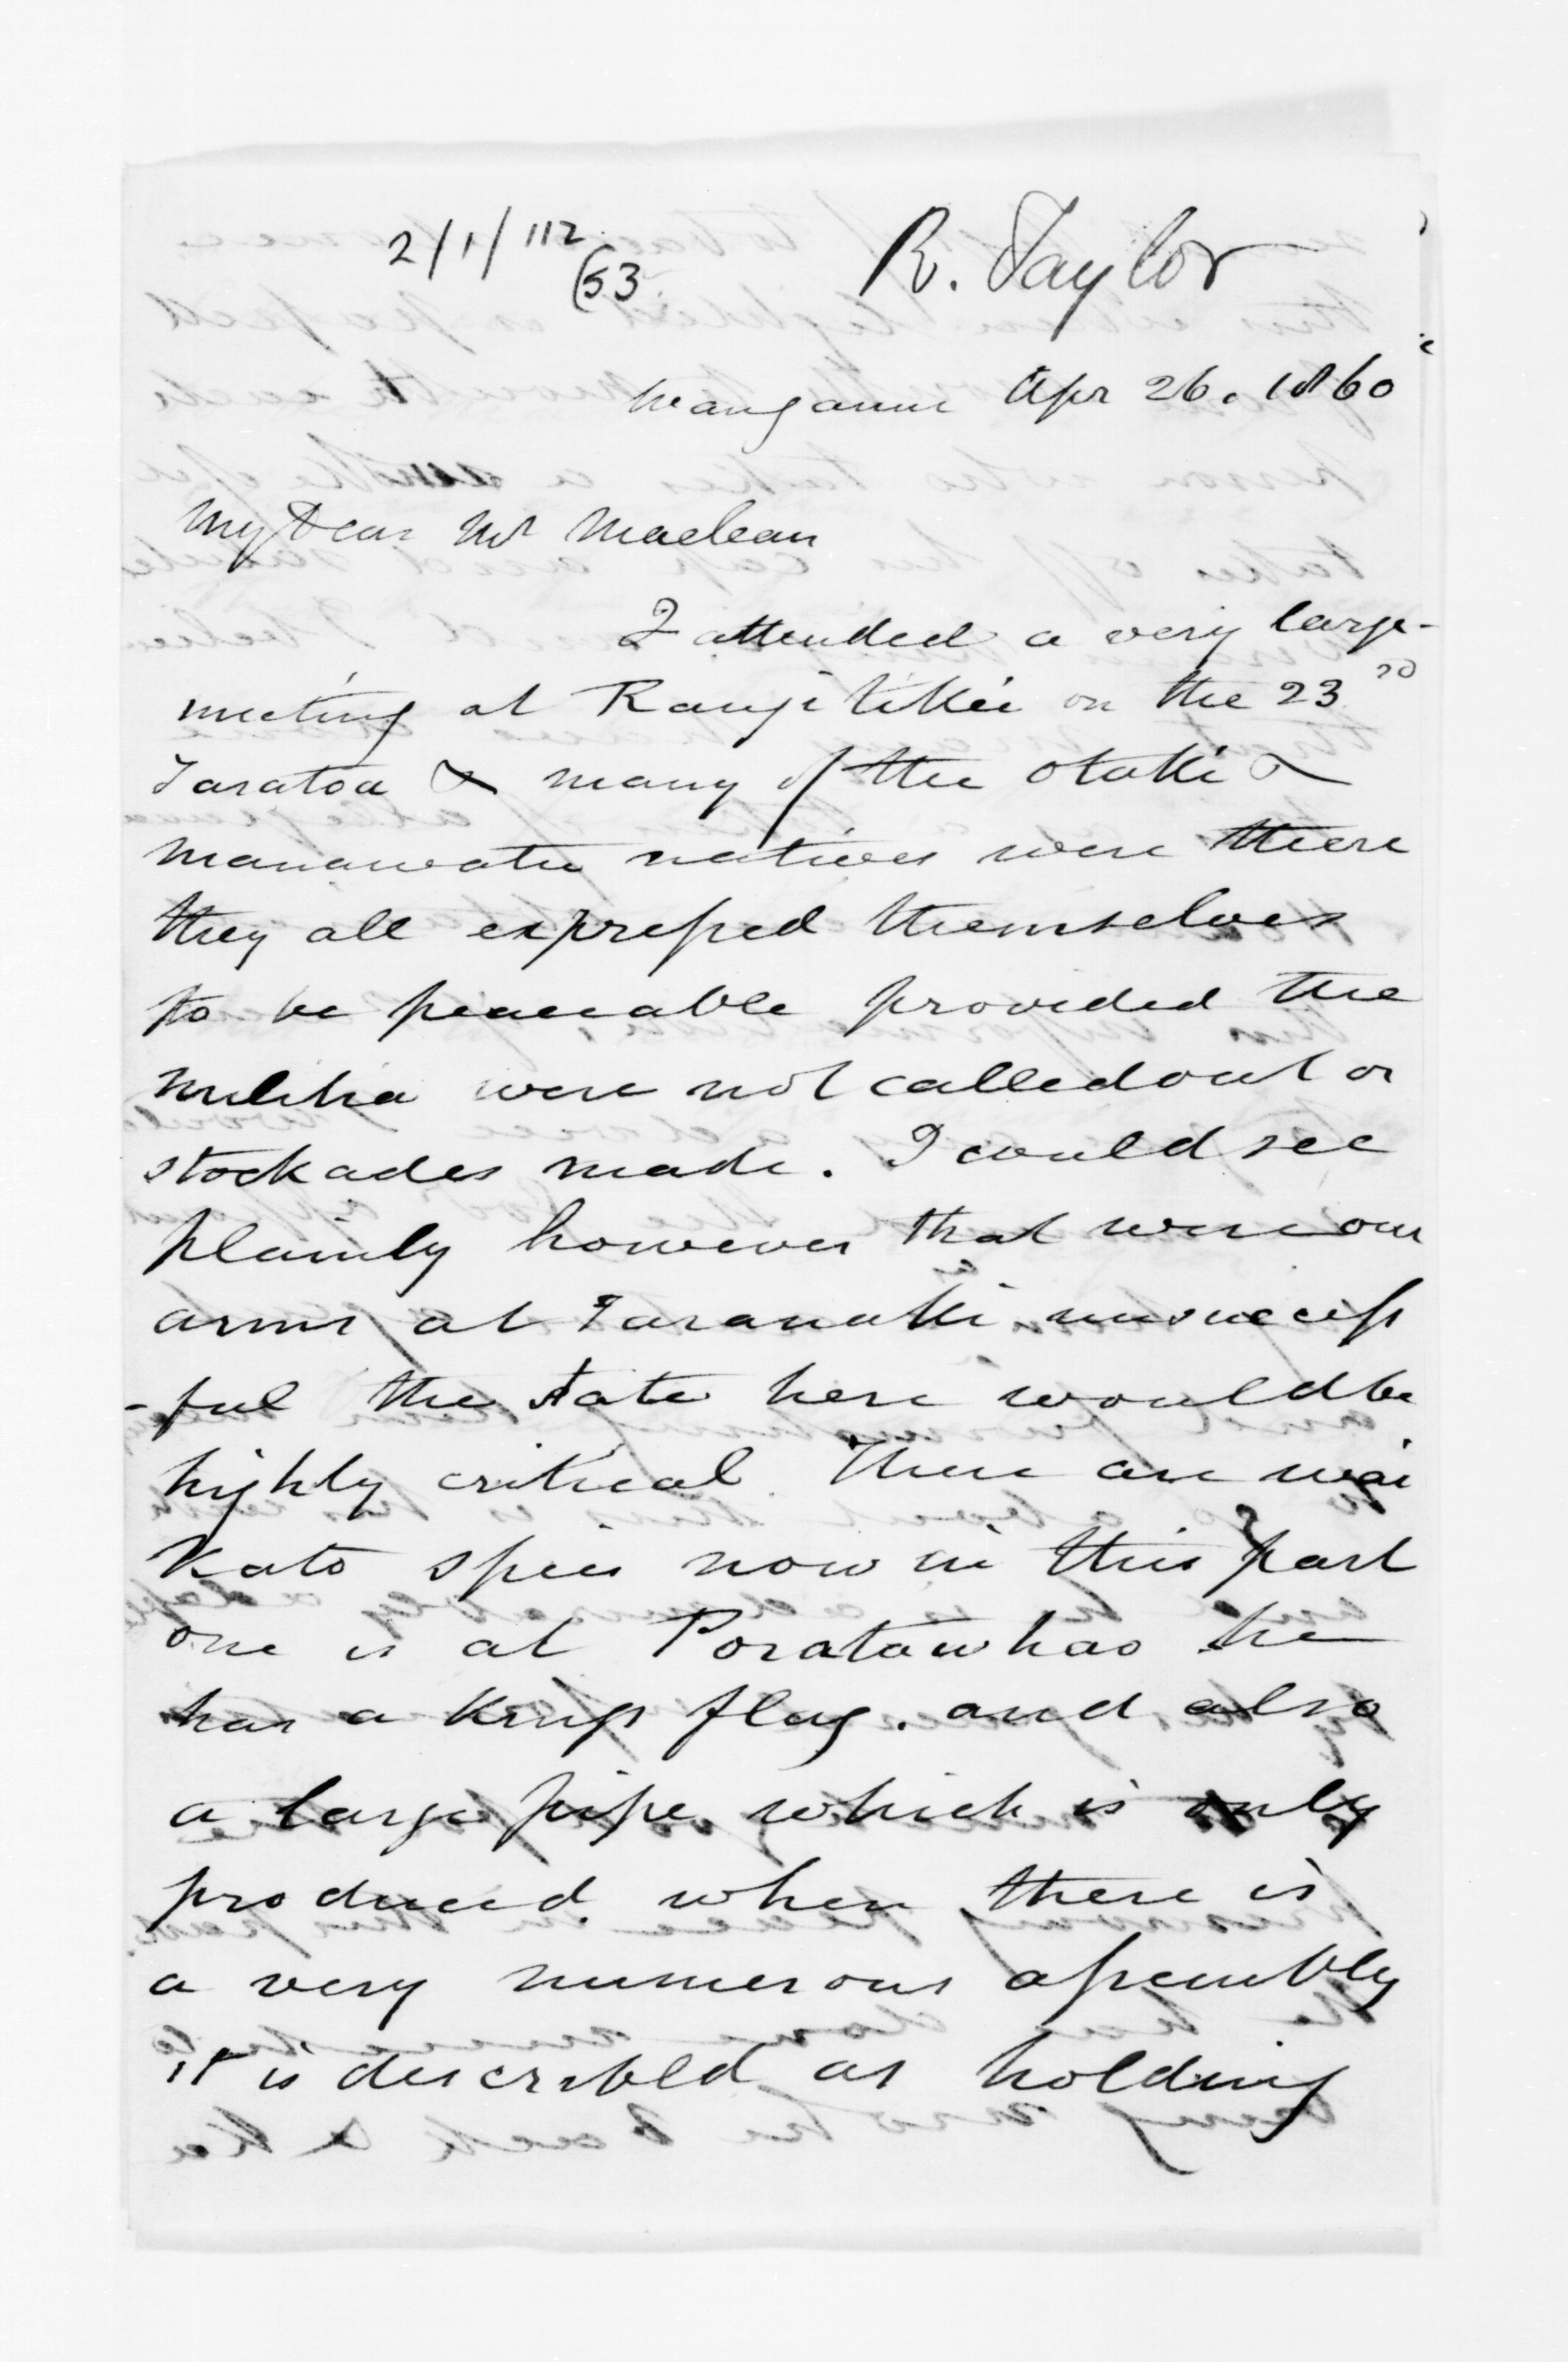 2/1/112
(53.
R. Taylor
Wanganui Apr 26. 1860
My Dear Mr Maclean
I attended a very large
meeting at Rangitikei on the 23rd
Taratoa & many of the Otaki &
Manawatu natives were there
they all expressed themselves
to be peaceable provided the
militia were not called out or
stockades made. I could see
plainly however that were our
arms at Taranaki unsuccess
-ful the state here would be
highly critical. There are Wai
Kato spies now in this part
one is at Poratawhao he
has a Kings flag. and also
a large pipe which is only
produced when there is
a very numerous assembly
it is described as holding